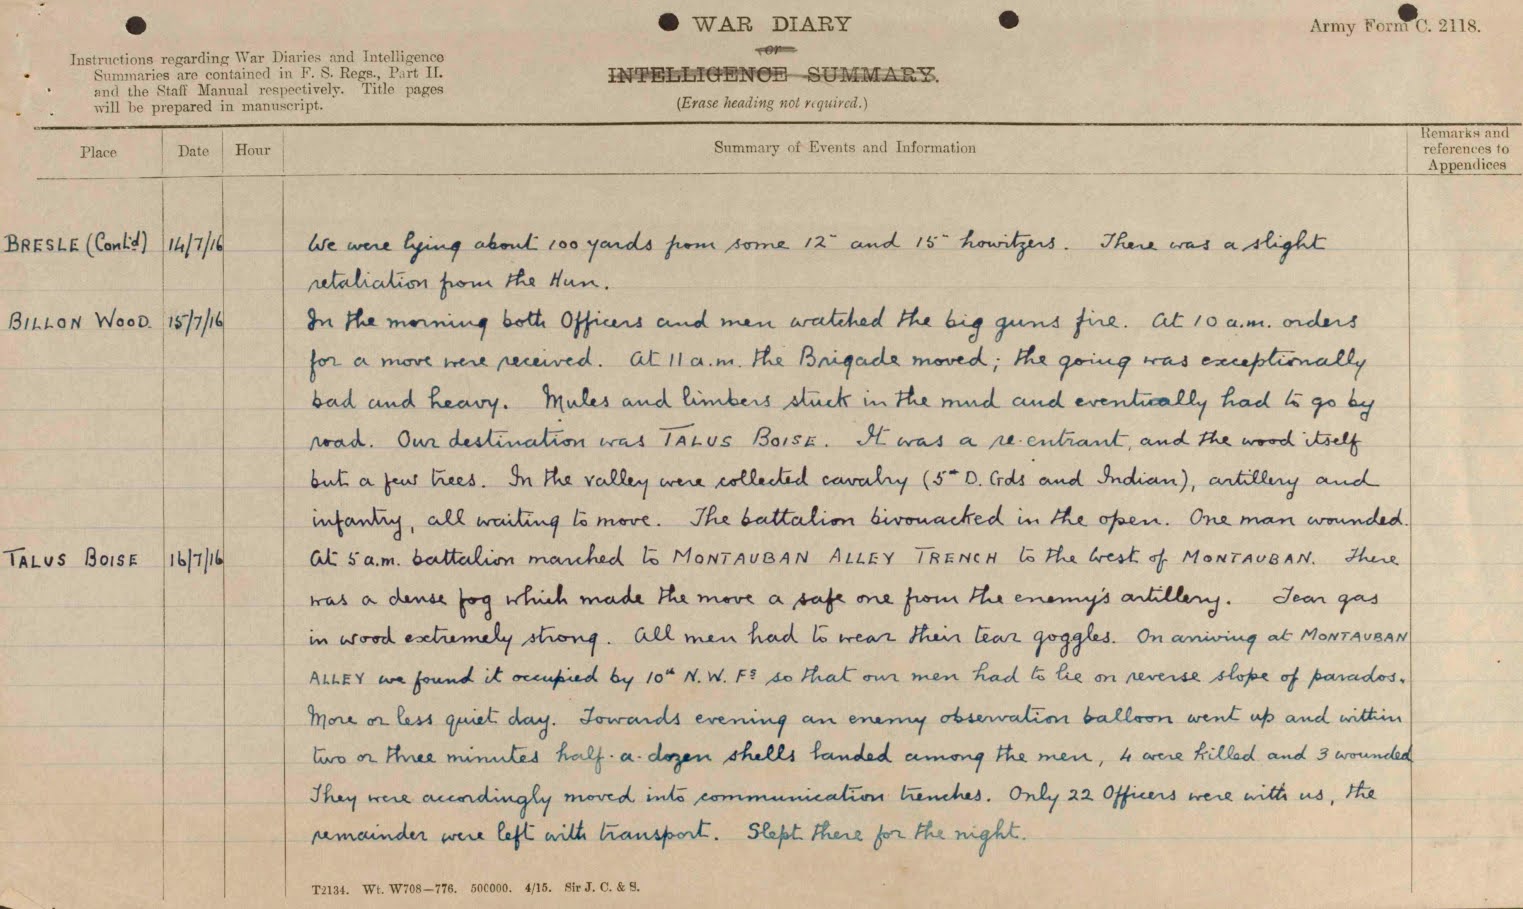 WAR DIARY
or
INTELLIGENCE SUMMARY.
(Erase heading not required.)
Army Form C. 2118.
Instructions regarding War Diaries and Intelligence
Summaries are contained in F. S. Regs., Part II.
and the Staff Manual respectively. Title pages
will be prepared in manuscript.
Place Date Hour Summary of Events and Information Remarks and
references to
Appendices
BRESLE (Cont'd) 14/7/16 We were lying about 100 yards from some 12" and 15" howitzers. There was a slight
retaliation from the Hun.
BILLON WOOD. 15/7/16 In the morning both Officers and men watched the big guns fire. At 10 a.m. orders
for a move were received. At 11 a.m. the Brigade moved; the going was exceptionally
bad and heavy. Mules and limbers stuck in the mud and eventually had to go by
road. Our destination was TALUS BOISE. It was a re-entrant, and the wood itself
but a few trees. In the valley were collected cavalry (5th D. Gds and Indian), artillery and
infantry, all waiting to move. The battalion bivouacked in the open. One man wounded.
TALUS BOISE 16/7/16 At 5 a.m. battalion marched to MONTAUBAN ALLEY TRENCH to the West of MONTAUBAN. There
was a dense fog which made the move a safe one from the enemy's artillery. Tear gas
in wood extremely strong. All men had to wear their tear goggles. On arriving at MONTAUBAN
ALLEY we found it occupied by 10th N. W. Fs so that our men had to lie on reverse slope of parados.
More or less quiet day. Towards evening an enemy observation balloon went up and within
two or three minutes half-a-dozen shells landed among the men, 4 were killed and 3 wounded
They were accordingly moved into communication trenches. Only 22 Officers were with us, the
remainder were left with transport. Slept there for the night.
T2134. Wt. W708—776. 500000. 4/15. Sir J. C. & S.